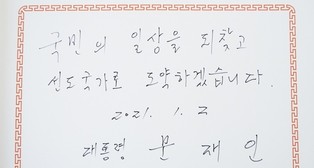 국민의 일상을 되찾고
선도국가로 도약하겠습니다.
2021. 1. 2
대통령 문재인